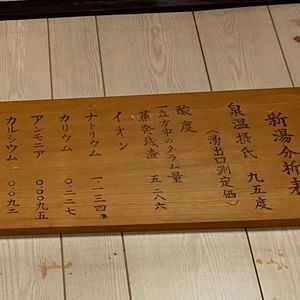 新湯分析表
泉温摂氏 九五度
(湧出口測定価)
酸度
一立方中のグラム量
蒸発残渣 五.二八六
イオン
ナトリウム 一.一三四
カリウム 〇.二二七
アンモニア 〇.〇〇九五
カルシウム 〇.〇九二